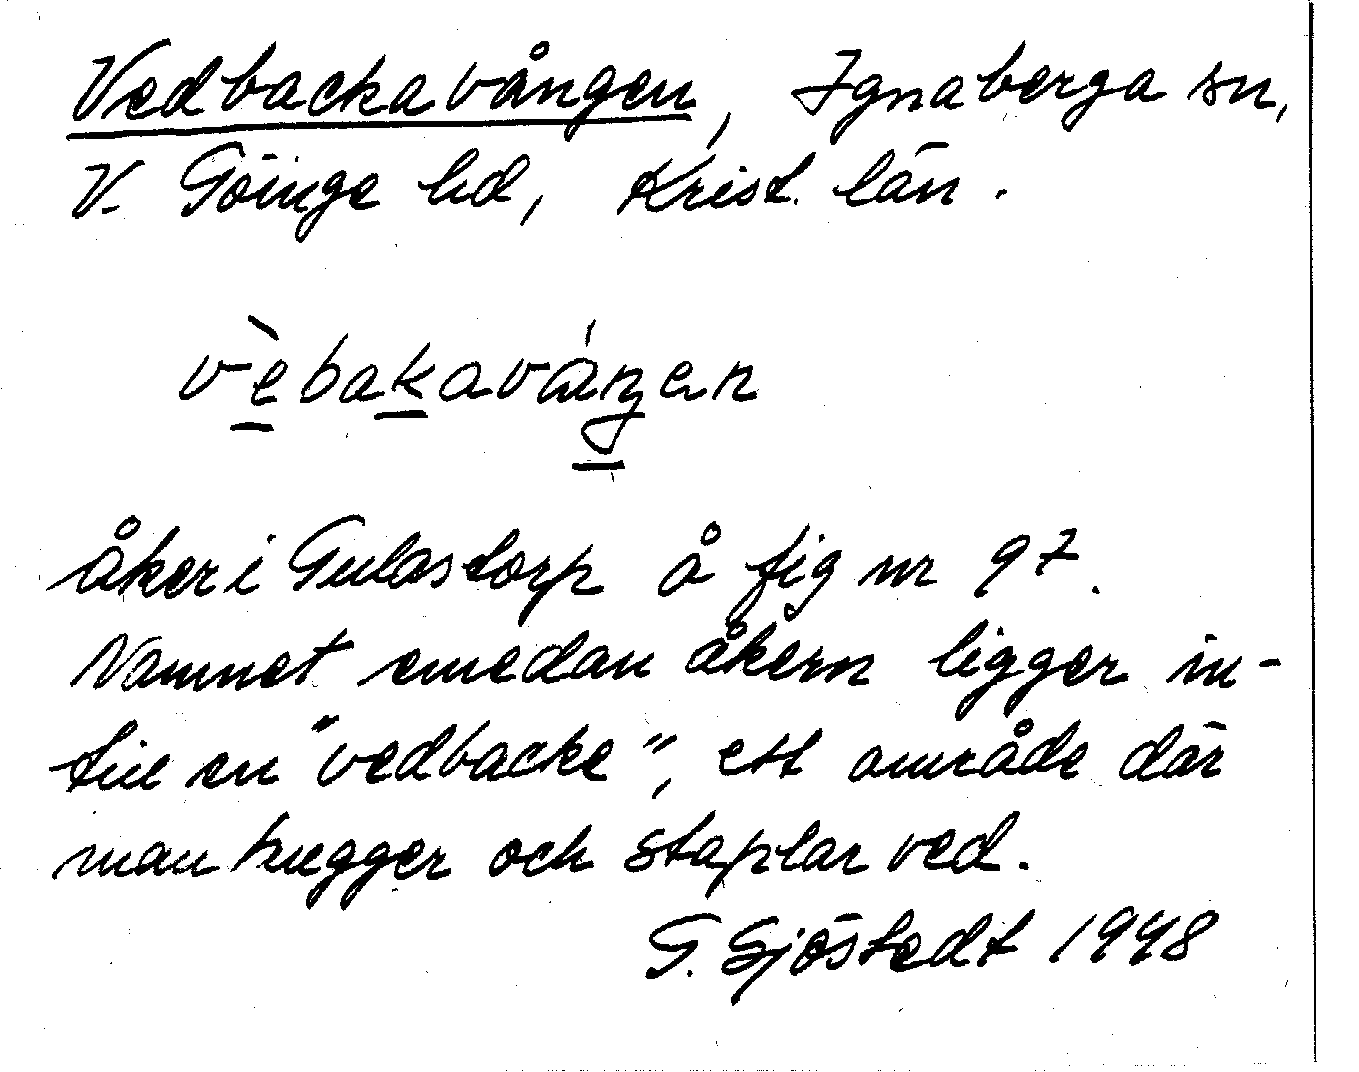 Vedbackavången, Ignaberga sn,
V. Göinge hd, Krist. län.
vèbakaváŋen
åker i Gulastorp å fig nr 97.
Namnet emedan åkern ligger in-
till en "vedbacke", ett område där
man hugger och staplar ved.
G. Sjöstedt 1948